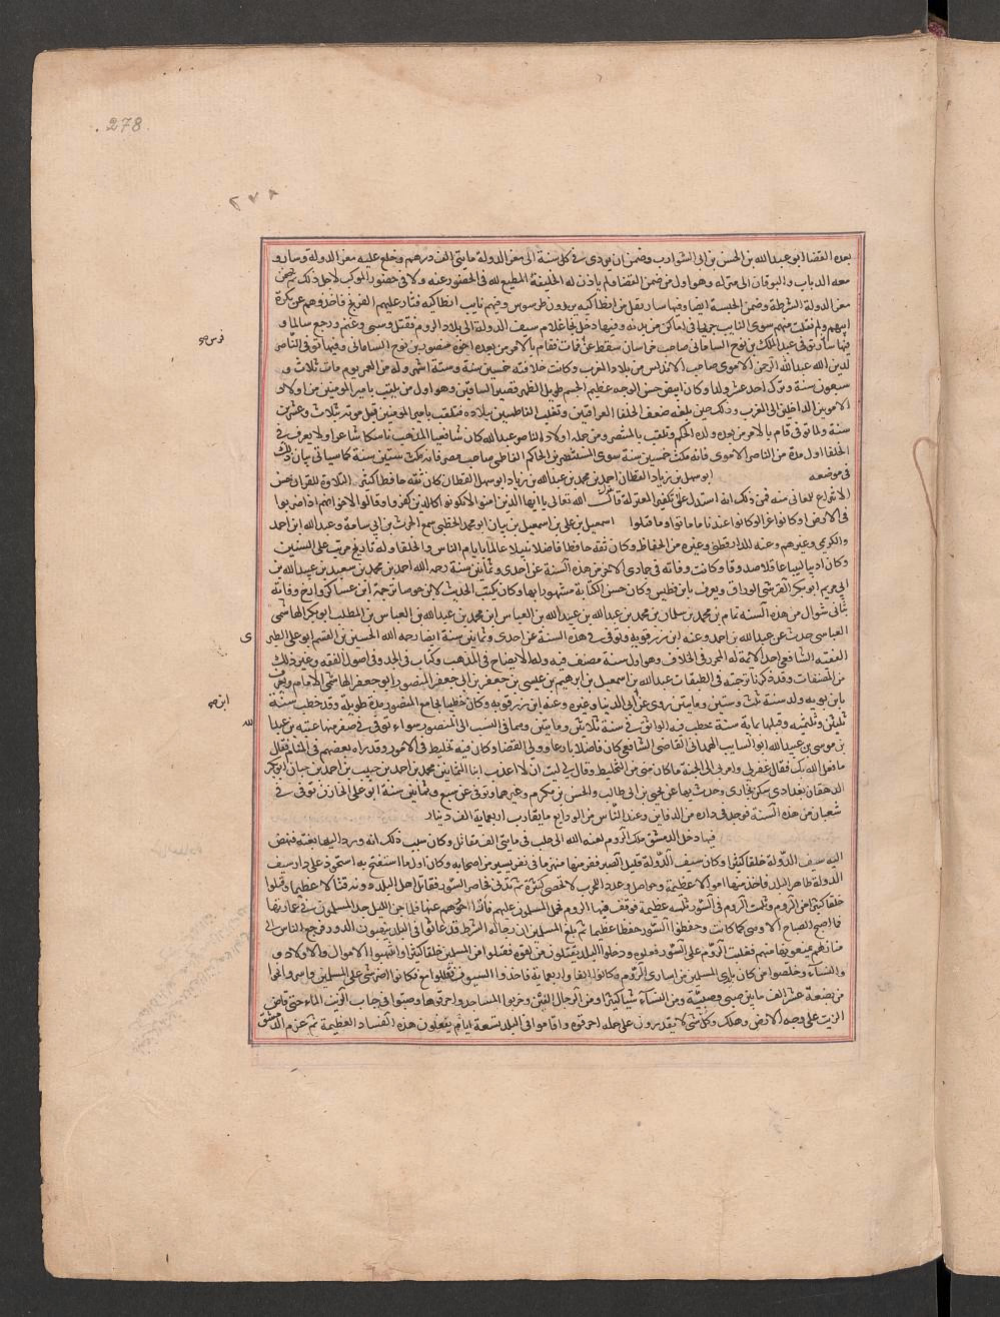 278
٢٧٨
بعده القضا ابو عبد الله بن الحسن بن ابى الشوارب وضمن ان يودى فى كل سنة الى معز الدولة مايتى الف درهم وخلع عليه معز الدولة وسار و
معه الدباب والبوقات الى منزله وهو اول من ضمن القضا ولم ياذن له الخليفة المطيع لله فى الحضور عنده ولا فى حضور الموكب لاجل ذلك ثم ضمن
معز الدولة الشرطة وضمن الحسبة ايضا وفيها سار نفل من انطاكيه يريدون طرسوس وفيهم نايب انطاكيه فثار عليهم الفرنج فاخذوهم عن بكرة
ابيهم ولم يفلت منهم سوى النايب جريحا فى اماكن من بدنه وفيها دخل نجا غلام سيف الدولة الى بلاد الروم فقتل وسبى وغنم ورجع سالما و
فيها توفى عبد الملك بن نوح السامانى صاحب خراسان سقط عن فمات فقام بالامر من بعده اخوه منصور بن نوح السامانى وفيها توفى الناصر
لدين الله عبد الرحمن الاموى صاحب الاندلس من بلاد المغرب وكانت خلافته خمسين سنة وستة اشهر وله من العمر يوم مات ثلاث و
سبعون سنة وترك احد عشر ولدا وكان ابيض حسن الوجه عظيم الجسم طويل الظهر قصير الساقين وهو اول من تلقب بامير المومنين من اولاد
الامويين الداخلين الى الغرب وذلك حين بلغه ضعف الخلفا العراقيين وتغلب الفاطميين ببلاده فتلقب بامير المومنين قبل موته بثلاث وعشرين
سنة ولما توفى قام بالامر من بعده ولده الحكم وتلقب بالمنتصر ومن جلد اولاد الناصر عبد الله كان شافعيا المذهب ناسكا شاعرا ولا يعرف فى
الخلفا اول مدة من الناصر الاموى فانه مكث خمسين سنة سوى المستنصر بن الحاكم الفاطمى صاحب مصر فانه مكث ستين سنة كما سياتى بيان ذلك
فى موضعه ابو سهل بن زياد القطان احمد بن محمد بن عبد الله بن زياد ابو سهل القطان كان ثقة حافظا كثير التلاوة للقران حسن
الانتزاع للمعانى منه فمن ذلك انه استدل على تكفير المعتزلة قال الله تعالى يا ايها الذين امنوا لا تكونوا كالذين كفروا وقالوا لاخوانهم اذا ضربوا
فى الارض او كانوا غزا لو كانوا عندنا ما ماتوا وما قتلوا اسمعيل بن على بن اسمعيل بن بيان ابو محمد الخطبى سمع الحرث بن ابى اسامة وعبد الله ابن احمد
والكديمى وغيرهم وعنه الدارقطنى وغيره من الحفاظ وكان ثقة حافظا فاضلا نبيلا عالما بايام الناس والخلفا وله تاريخ مرتب على السنين
وكان اديبا لبيبا عاقلا صدوقا وكانت وفاته فى جمادى الاخرة من هذه السنة عن احدى وثمانين سنة رحمه الله احمد بن محمد بن سعيد بن عبيد الله بن
ابى مريم ابو بكر القرشى الوراق ويعرف بابن فطيس وكان حسن الكتابة مشهورا بها وكان يكتب الحديث لابن جوصا ترجمه ابن عساكر وارخ وفاته
ثانى شوال من هذه السنه تمام بن محمد بن سلمان بن محمد بن عبد الله بن عبيد الله بن العباس ابن محمد بن عبد الله بن العباس بن المطلب ابو بكر الهاشمى
العباسى حدث عن عبد الله بن احمد وعنه ابن رزقويه وتوفى فى هذه السنة عن احدى وثمانين سنة ايضا رحمه الله الحسين بن القسم ابو على الطبرى
الفقيه الشافعى احد الائمة له المحرر فى الخلاف وهو اول سنة مصنف فيه وله الايضاح فى المذهب وكتاب فى الجدل وفى اصول الفقه وغير ذلك
من المصنفات وقد ذكرنا ترجمته فى الطبقات عبد الله بن اسمعيل بن ابرهيم بن عيسى بن جعفر بن ابى جعفر المنصور ابو جعفر الهاشمى الامام ويعرف
بابن بويه ولد سنة ثلث وستين ومايتين روى عن ابن ابى الدنيا وغيره وعنه ابن رزقويه وكان خطيبا بجامع المنصور مدة طويلة وقد خطب سنة
ثلثين وثلثمائه وقبلها بماية سنة خطب فيه الواثق فى سنة ثلاثين ومايتين وهما فى النسب الى المنصور سواء توفى فى صفر منها عتبه بن عبد الله
بن موسى بن عبيد الله ابو السايب الهمدانى القاضى الشافعى كان فاضلا بارعا وولى القضا وكان فيه تخليط فى الامور وقد راه بعضهم فى المنام فقال
ما فعل الله بك فقال غفر لى وامر بى الى الجنة على ما كان منى من التخليط وقال لى اليت ان لا اعذب ابنا الثمانين محمد بن احمد بن حبيب بن احمد بن حيان ابو بكر
الدهقان بغدادى سكن بخارى وحدث بها عن يحيى بن ابى طالب والحسن بن مكرم وغيرهما وتوفى عن سبع وثمانين سنة ابو على الخازن توفى فى
شعبان من هذه السنة فوجد فى داره من الدفاين وعند الناس من الودايع ما يقارب اربعماية الف دينار
فيها دخل الدمستق ملك الروم لعنه الله الى حلب فى مايتى الف مقاتل وكان سبب ذلك انه ورد اليها بغتة فنهض
اليه سيف الدولة خلقا كثيرا وكان سيف الدولة قليل الصبر ففر منها منهزما فى نفر يسير من اصحابه وكان اول ما استفتح به استحوذ على دار سيف
الدولة ظاهر البلد فاخذ منها اموالا عظيمة وحواصل وعدد للحرب لا تحصى كثرة ثم تدنى فحاصر السور فقاتل اهل البلد دونه قتالا عظيما وقتلوا
خلقا كثيرا من الروم وثلمت الروم فى السور ثلمة عظيمة فوقف فيها الروم فحمل المسلمون عليهم فازاحوهم عنها فلما جن الليل جد المسلمون فى عمارتها
فما اصبح الصباح الا وهى كما كانت وحفظوا السور حفظا عظيما ثم بلغ المسلمين ان رجالة الشرط قد عاثوا فى البلد ينهبون الدور فرجع الناس الى
منازلهم يمنعونها منهم فغلبت الروم على السور فعلوه ودخلوا البلد يقتلون من لقوه فقتلوا من المسلمين خلقا كثيرا وانتهبوا الاموال والاولاد و
والنساء وخلصوا من كان بايدى المسلمين من اسارى الروم وكانوا الفا واربعماية فاخذوا السيوف وقاتلوا مع فكانوا اضر شى على المسلمين واسروا نحوا
من بضعة عشر الف ما بين صبى وصبية ومن النساء شيا كثيرا ومن الرجال الفين وخربوا المساجد واحرقوها وصبوا فى جباب الزيت الماء حتى فاض
الزيت على وجه الارض وهلك وكل شى لا يقدرون على حمله احرقوه واقاموا فى البلد تسعة ايام يفعلون هذه الفساد العظيمة ثم عزم الدمستق
فرس صح
ابن صح